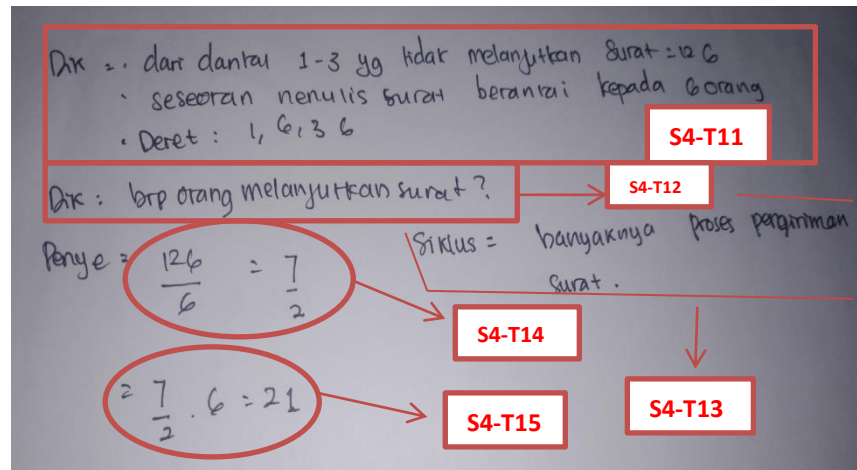 Dik = . dari dantai 1-3 yg tidak melanjutkan surat = 126
. seseoran nenulis surat berantai kepada 6 orang
. Deret : 1, 6, 36
S4-T11
Dik : brp orang melanjutkan surat ?
S4-T12
Siklus = banyaknya proses pengiriman
surat .
Penye = 126/6 = 7/2
S4-T14
= 7/2 . 6 = 21
S4-T15
S4-T13